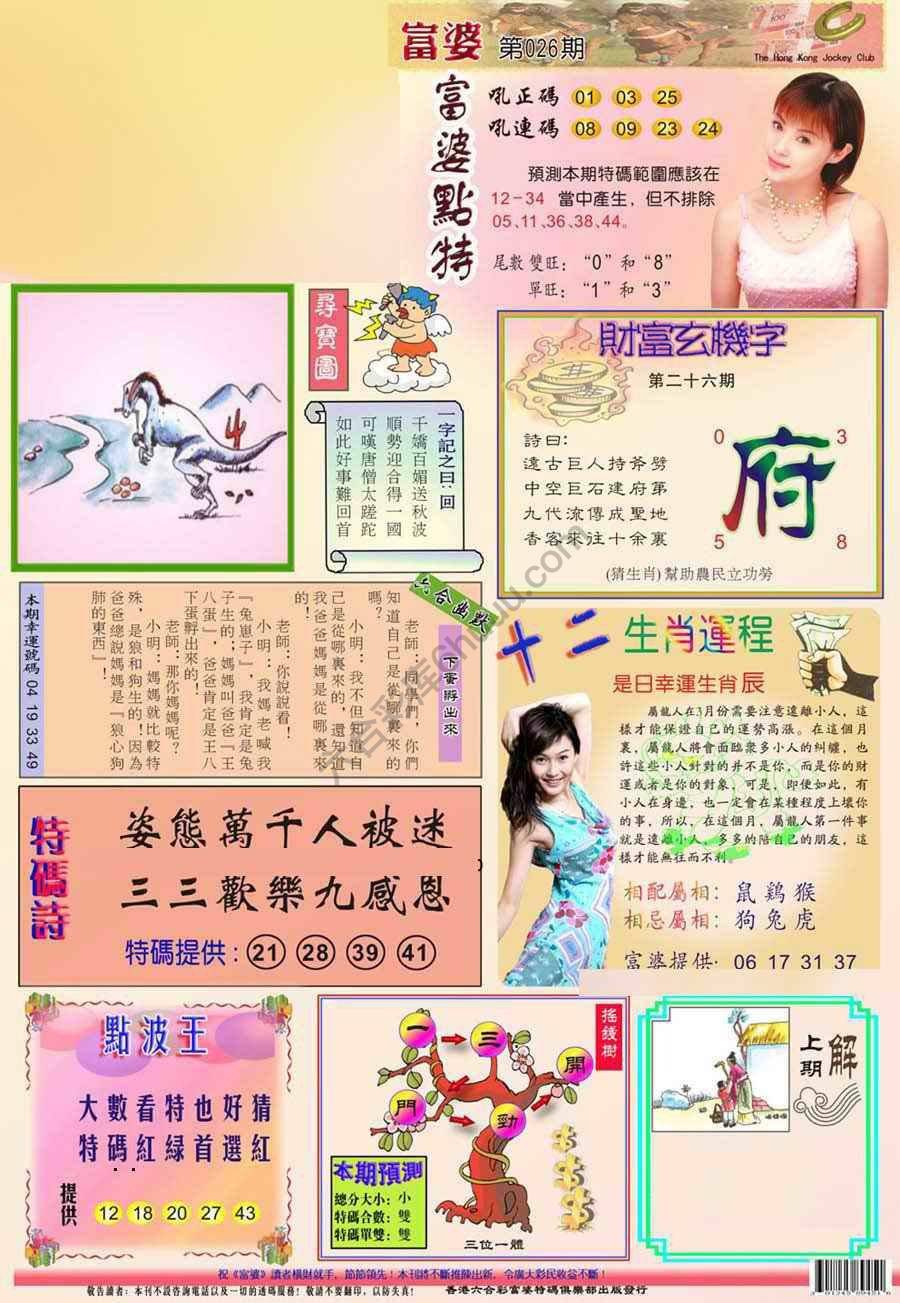 富婆 第026期
The Hong Kong Jockey Club
富婆點特
吼正碼 01 03 25
吼連碼 08 09 23 24
預測本期特碼範圍應該在
12-34 當中產生，但不排除
05、11、36、38、44。
尾數 雙旺：“0”和“8”
單旺：“1”和“3”
尋寶圖
一字記之曰：回
千嬌百媚送秋波
順勢迎合得一國
可嘆唐僧太蹉跎
如此好事難回首
財富玄機字
第二十六期
詩曰：
遠古巨人持斧劈
中空巨石建府第
九代流傳成聖地
香客來往十余裏
0 3
府
5 8
(猜生肖)幫助農民立功勞
六合幽默
下蛋孵出來
老師：同學們，你們
知道自己是從哪裏來的
嗎？
小明：我不但知道自
己是從哪裏來的，還知道
我爸爸媽媽是從哪裏來
的！
老師：你說說看！
小明：我媽老喊我
『兔崽子』，我肯定是兔
子生的，媽媽叫爸爸『王
八蛋』，爸爸肯定是王八
下蛋孵出來的！
老師：那你媽媽呢？
小明：媽媽就比較特
殊，是狼和狗生的！因為
爸爸總說媽媽是『狼心狗
肺的東西』！
本期幸運號碼 04 19 33 49
十二生肖運程
是日幸運生肖 辰
屬龍人在3月份需要注意遠離小人，這
樣才能保證自己的運勢高漲。在這個月
裏，屬龍人將會面臨衆多小人的糾纏，也
許這些小人針對的并不是你，而是你的財
運或者是你的對象，可是，即便如此，有
小人在身邊，也一定會在某種程度上壞你
的事，所以，在這個月，屬龍人第一件事
就是遠離小人，多多的陪自己的朋友，這
樣才能無往而不利。
相配屬相：鼠 鷄 猴
相忌屬相：狗 兔 虎
富婆提供：06 17 31 37
特碼詩
姿態萬千人被迷
三三歡樂九感恩
特碼提供：21 28 39 41
點波王
大數看特也好猜
特碼紅綠首選紅
提供 12 18 20 27 43
搖錢樹
一 三 開
門 勁
本期預測
總分大小：小
特碼合數：雙
特碼單雙：雙
三位一體
上期解
祝《富婆》讀者橫財就手，節節領先！本刊將不斷推陳出新，令廣大彩民收益不斷！
敬告讀者：本刊不設咨詢電話以及一切的透碼服務！敬請不要翻印，以防失真！ 香港六合彩富婆特碼俱樂部出版發行